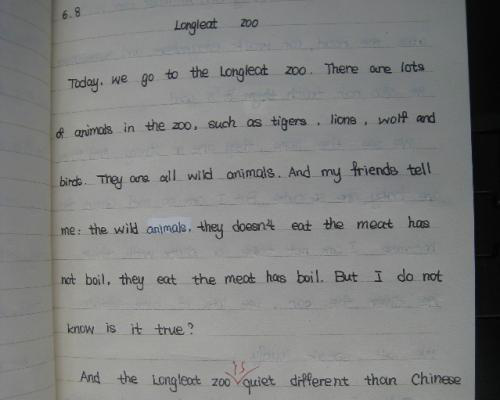 6.8
Longleat zoo
Today, we go to the Longleat zoo. There are lots
of animals in the zoo, such as tigers, lions, wolf and
birds. They are all wild animals. And my friends tell
me: the wild animals, they doesn't eat the meat has
not boil, they eat the meat has boil. But I do not
know is it true?
is
And the Longleat zoo quiet different than Chinese